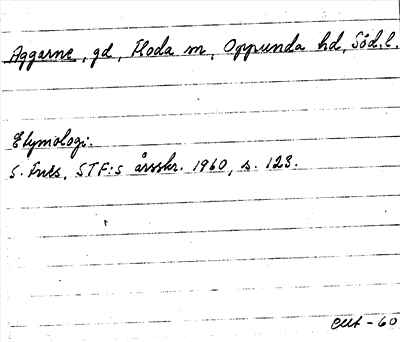 Aggarne, gd, Floda sn, Oppunda hd, Söd.l.
Etymologi:
S. Fries, STF:s årsskr. 1960, s. 123.
-60